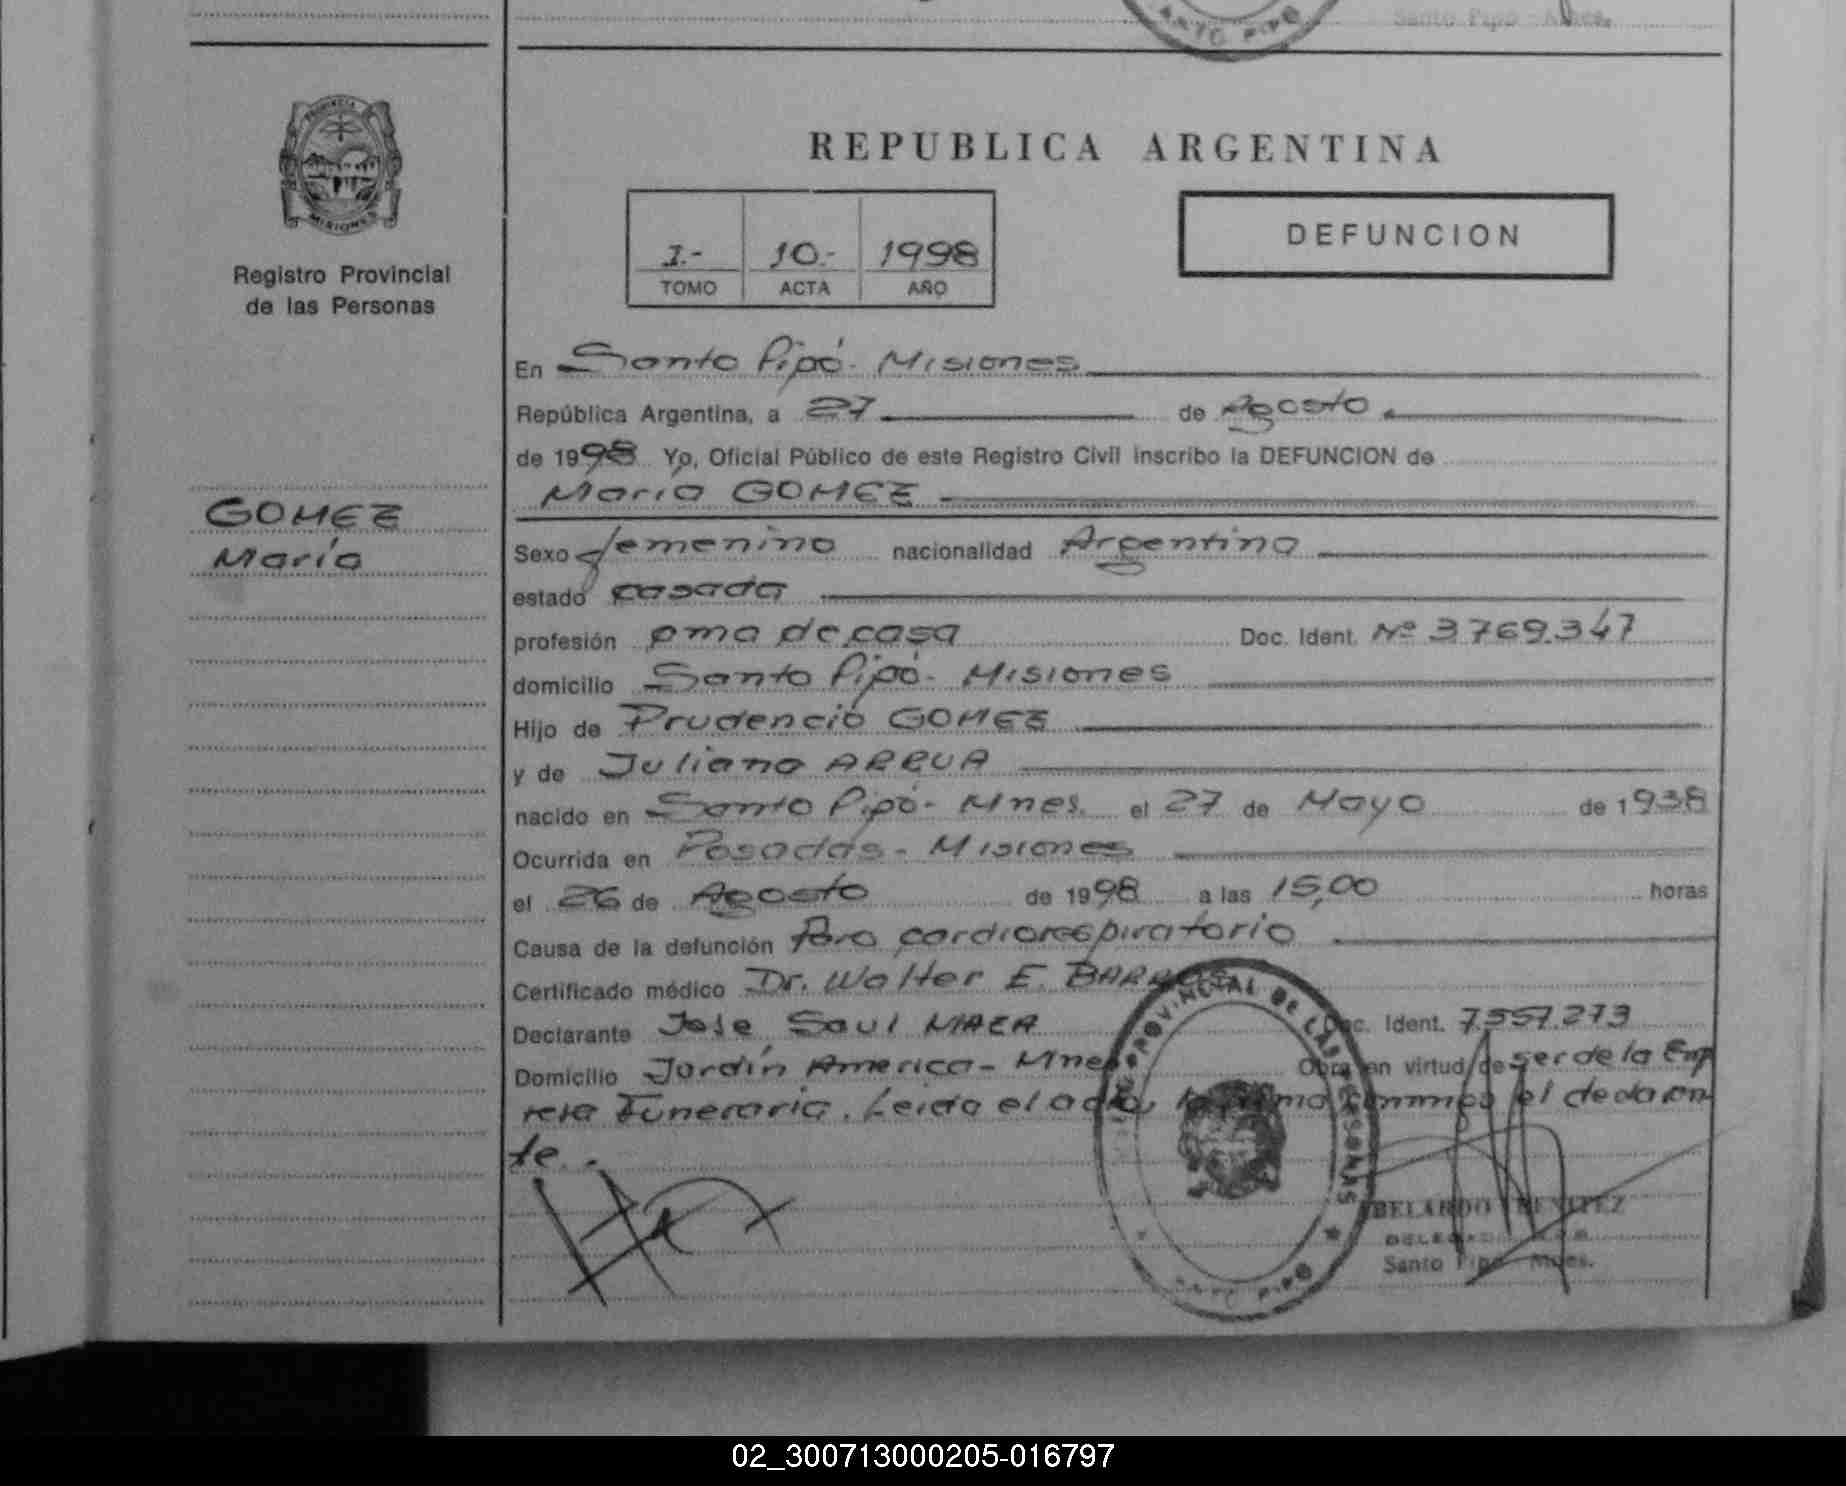 Santo Pipó Mnes.
SANTO PIPO
PROVINCIA
MISIONES
Registro Provincial
de las Personas
GOMEZ
María
REPUBLICA ARGENTINA
1.- 10.- 1998
TOMO ACTA AÑO
DEFUNCION
En Santo Pipó- Misiones
República Argentina, a 27 de Agosto
de 1998 Yo, Oficial Público de este Registro Civil inscribo la DEFUNCION de
Maria GOMEZ
Sexo femenino nacionalidad Argentina
estado casada
profesión ama de casa Doc. Ident. Nº 3.769.347
domicilio Santo Pipó- Misiones
Hijo de Prudencio GOMEZ
y de Juliana ARRUA
nacido en Santo Pipó- Mnes. el 27 de Mayo de 1938
Ocurrida en Posadas - Misiones
el 26 de Agosto de 1998 a las 15,00 horas
Causa de la defunción Paro cardiorespiratorio
Certificado médico Dr. Walter E.
Declarante Jose Saul Doc. Ident. 7.557.273
Domicilio Jardín America- Mnes Obra en virtud de ser de la Emp
resa Funeraria. Leida el acta, la firma conmigo el declaran
te.
PROVINCIAL DE LAS PERSONAS
SANTO PIPO
ABELARDO BENITEZ
Santo Pipó Mnes.
02_300713000205-016797